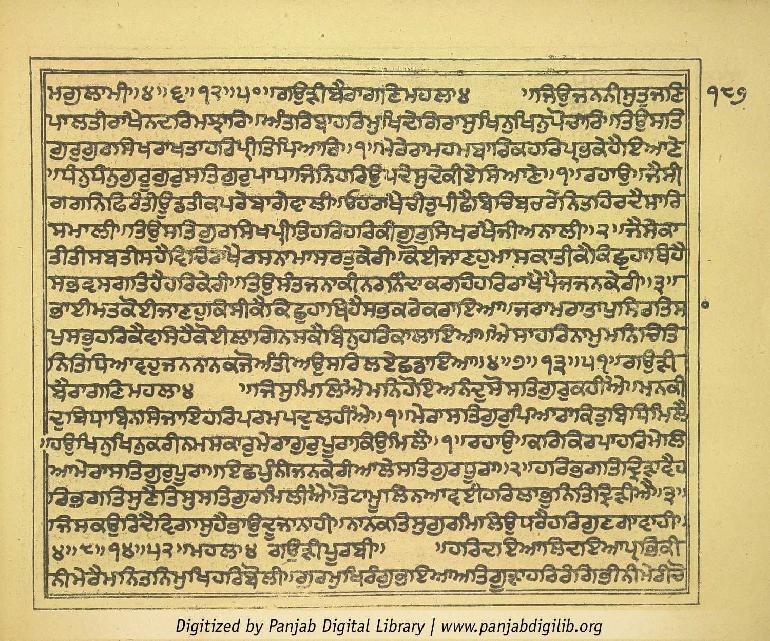 ਮਗੁਲਾਮੀ॥੪॥੬॥੧੨॥੫੦॥ਗਉੜੀਬੈਰਾਗਣਿਮਹਲਾ੪ ॥ਜਿਉਜਨਨੀਸੁਤੁਜਣਿ ੧੮੭
ਪਾਲਤੀਰਾਖੈਨਦਰਿਮਝਾਰਿ॥ਅੰਤਰਿਬਾਹਰਿਮੁਖਿਦੇਗਿਰਾਸੁਖਿਨੁਖਿਨੁਪੋਚਾਰਿ॥ਤਿਉਸਤਿ
ਗੁਰੁਗੁਰਸਿਖਰਾਖਤਾਹਰਿਪ੍ਰੀਤਿਪਿਆਰਿ॥੧॥ਮੇਰੇਰਾਮਹਮਬਾਰਿਕਹਰਿਪ੍ਰਭਕੇਹੈਇਆਣੇ
॥ਧੰਨੁਧੰਨੁਗੁਰੂਗੁਰੁਸਤਿਗੁਰੁਪਾਧਾਜਿਨਿਹਰਿਉਪਦੇਸੁਦੇਕੀਏਸਿਆਣੇ॥੧॥ਰਹਾਉ॥ਜੈਸੀ
ਗਗਨਿਫਿਰੰਤੀਊਡਤੀਕਪਰੇਬਾਗੇਵਾਲੀ॥ਓਹਰਾਖੈਚੀਤੁਪੀਛੈਬਿਚਿਬਚਰੇਨਿਤਹਿਰਦੈਸਾਰਿ
ਸਮਾਲੀ॥ਤਿਉਸਤਿਗੁਰਸਿਖਪ੍ਰੀਤਿਹਰਿਹਰਿਕੀਗੁਰੁਸਿਖਰਖੈਜੀਅਨਾਲੀ॥੨॥ਜੈਸੇਕਾ
ਤੀਤੀਸਬਤੀਸਹੈਵਿਚਿਰਾਖੈਰਸਨਾਮਾਸਰਤੁਕੇਰੀ॥ਕੋਈਜਾਣਹੁਮਾਸਕਾਤੀਕੈਕਿਛੁਹਾਥਿਹੈ
ਸਭਵਸਗਤਿਹੈਹਰਿਕੇਰੀ॥ਤਿਉਸੰਤਜਨਾਕੀਨਰਨਿੰਦਾਕਰਹਿਹਰਿਰਾਖੈਪੈਜਜਨਕੇਰੀ॥੩॥
ਭਾਈਮਤਕੋਈਜਾਣਹੁਕਿਸੀਕੈਕਿਛੁਹਾਥਿਹੈਸਭਕਰੇਕਰਾਇਆ॥ਜਰਾਮਰਾਤਾਪੁਸਿਰਤਿਸਾ
ਪੁਸਭੁਹਰਿਕੈਵਸਿਹੈਕੋਈਲਾਗਿਨਸਕੈਬਿਨੁਹਰਿਕਾਲਾਇਆ॥ਐਸਾਹਰਿਨਾਮੁਮਨਿਚਿਤਿ
ਨਿਤਿਧਿਆਵਹੁਜਨਨਾਨਕਜੋਅੰਤੀਅਉਸਰਿਲਏਛਡਾਇਆ॥੪॥੭॥੧੩॥੫੧॥ਗਉੜੀ
ਬੈਰਾਗਣਿਮਹਲਾ੪ ॥ਜਿਸੁਮਿਲਿਐਮਨਿਹੋਇਅਨੰਦੁਸੋਸਤਿਗੁਰੁਕਹੀਐ॥ਮਨਕੀ
ਦੁਬਿਧਾਬਿਨਸਿਜਾਇਹਰਿਪਰਮਪਦੁਲਹੀਐ॥੧॥ਮੇਰਾਸਤਿਗੁਰੁਪਿਆਰਾਕਿਤੁਬਿਧਿਮਿਲੈ
॥ਹਉਖਿਨੁਖਿਨੁਕਰੀਨਮਸਕਾਰੁਮੇਰਾਗੁਰੁਪੂਰਾਕਿਉਮਿਲੈ॥੧॥ਰਹਾਉ॥ਕਰਿਕਿਰਪਾਹਰਿਮੇਲਿ
ਆਮੇਰਾਸਤਿਗੁਰੁਪੂਰਾ॥ਇਛਪੁੰਨੀਜਨਕੇਰੀਆਲੇਸਤਿਗੁਰਧੂਰਾ॥੨॥ਹਰਿਭਗਤਿਦ੍ਰਿੜਾਵੈਹ
ਰਿਭਗਤਿਸੁਣੈਤਿਸੁਸਤਿਗੁਰਮਿਲੀਐ॥ਤੋਟਾਮੂਲਿਨਆਵਈਹਰਿਲਾਭੁਨਿਤਿਦ੍ਰਿੜੀਐ॥੩॥
॥ਜਿਸਕਉਰਿਦੈਵਿਗਾਸੁਹੈਭਾਉਦੂਜਾਨਾਹੀ॥ਨਾਨਕਤਿਸੁਗੁਰਮਿਲਿਉਧਰੈਹਰਿਗੁਣਗਾਵਾਹੀ॥
੪॥੮॥੧੪॥੫੨॥ਮਹਲਾ੪ ਗਉੜੀਪੂਰਬੀ॥ ॥ਹਰਿਦਇਆਲਿਦਇਆਪ੍ਰਭਿਕੀ
ਨੀਮੇਰੈਮਨਿਤਨਿਮੁਖਿਹਰਿਬੋਲੀ॥ਗੁਰਮੁਖਿਰੰਗੁਭਇਆਅਤਿਗੂੜਾਹਰਿਰੰਗਿਭੀਨੀਮੇਰੀਚੋ
Digitized by Panjab Digital Library | www.panjabdigilib.org